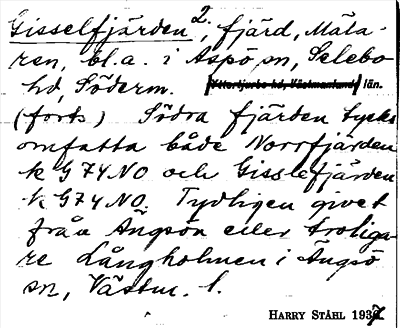 Gisselfjärden 2, fjärd, Mäla-
ren, bl.a. i Aspö sn, Selebo
hd, Söderm. Yttertjurbo hd, Västmanlands län.
(forts) Södra fjärden tycks
omfatta både Norrfjärden
k G 74 NO och Gisslefjärden
k G74 NO. Tydligen givet
från Ängsön eller troliga-
re Långholmen i Ängsö
sn, Västm. l.
HARRY STÅHL 1937